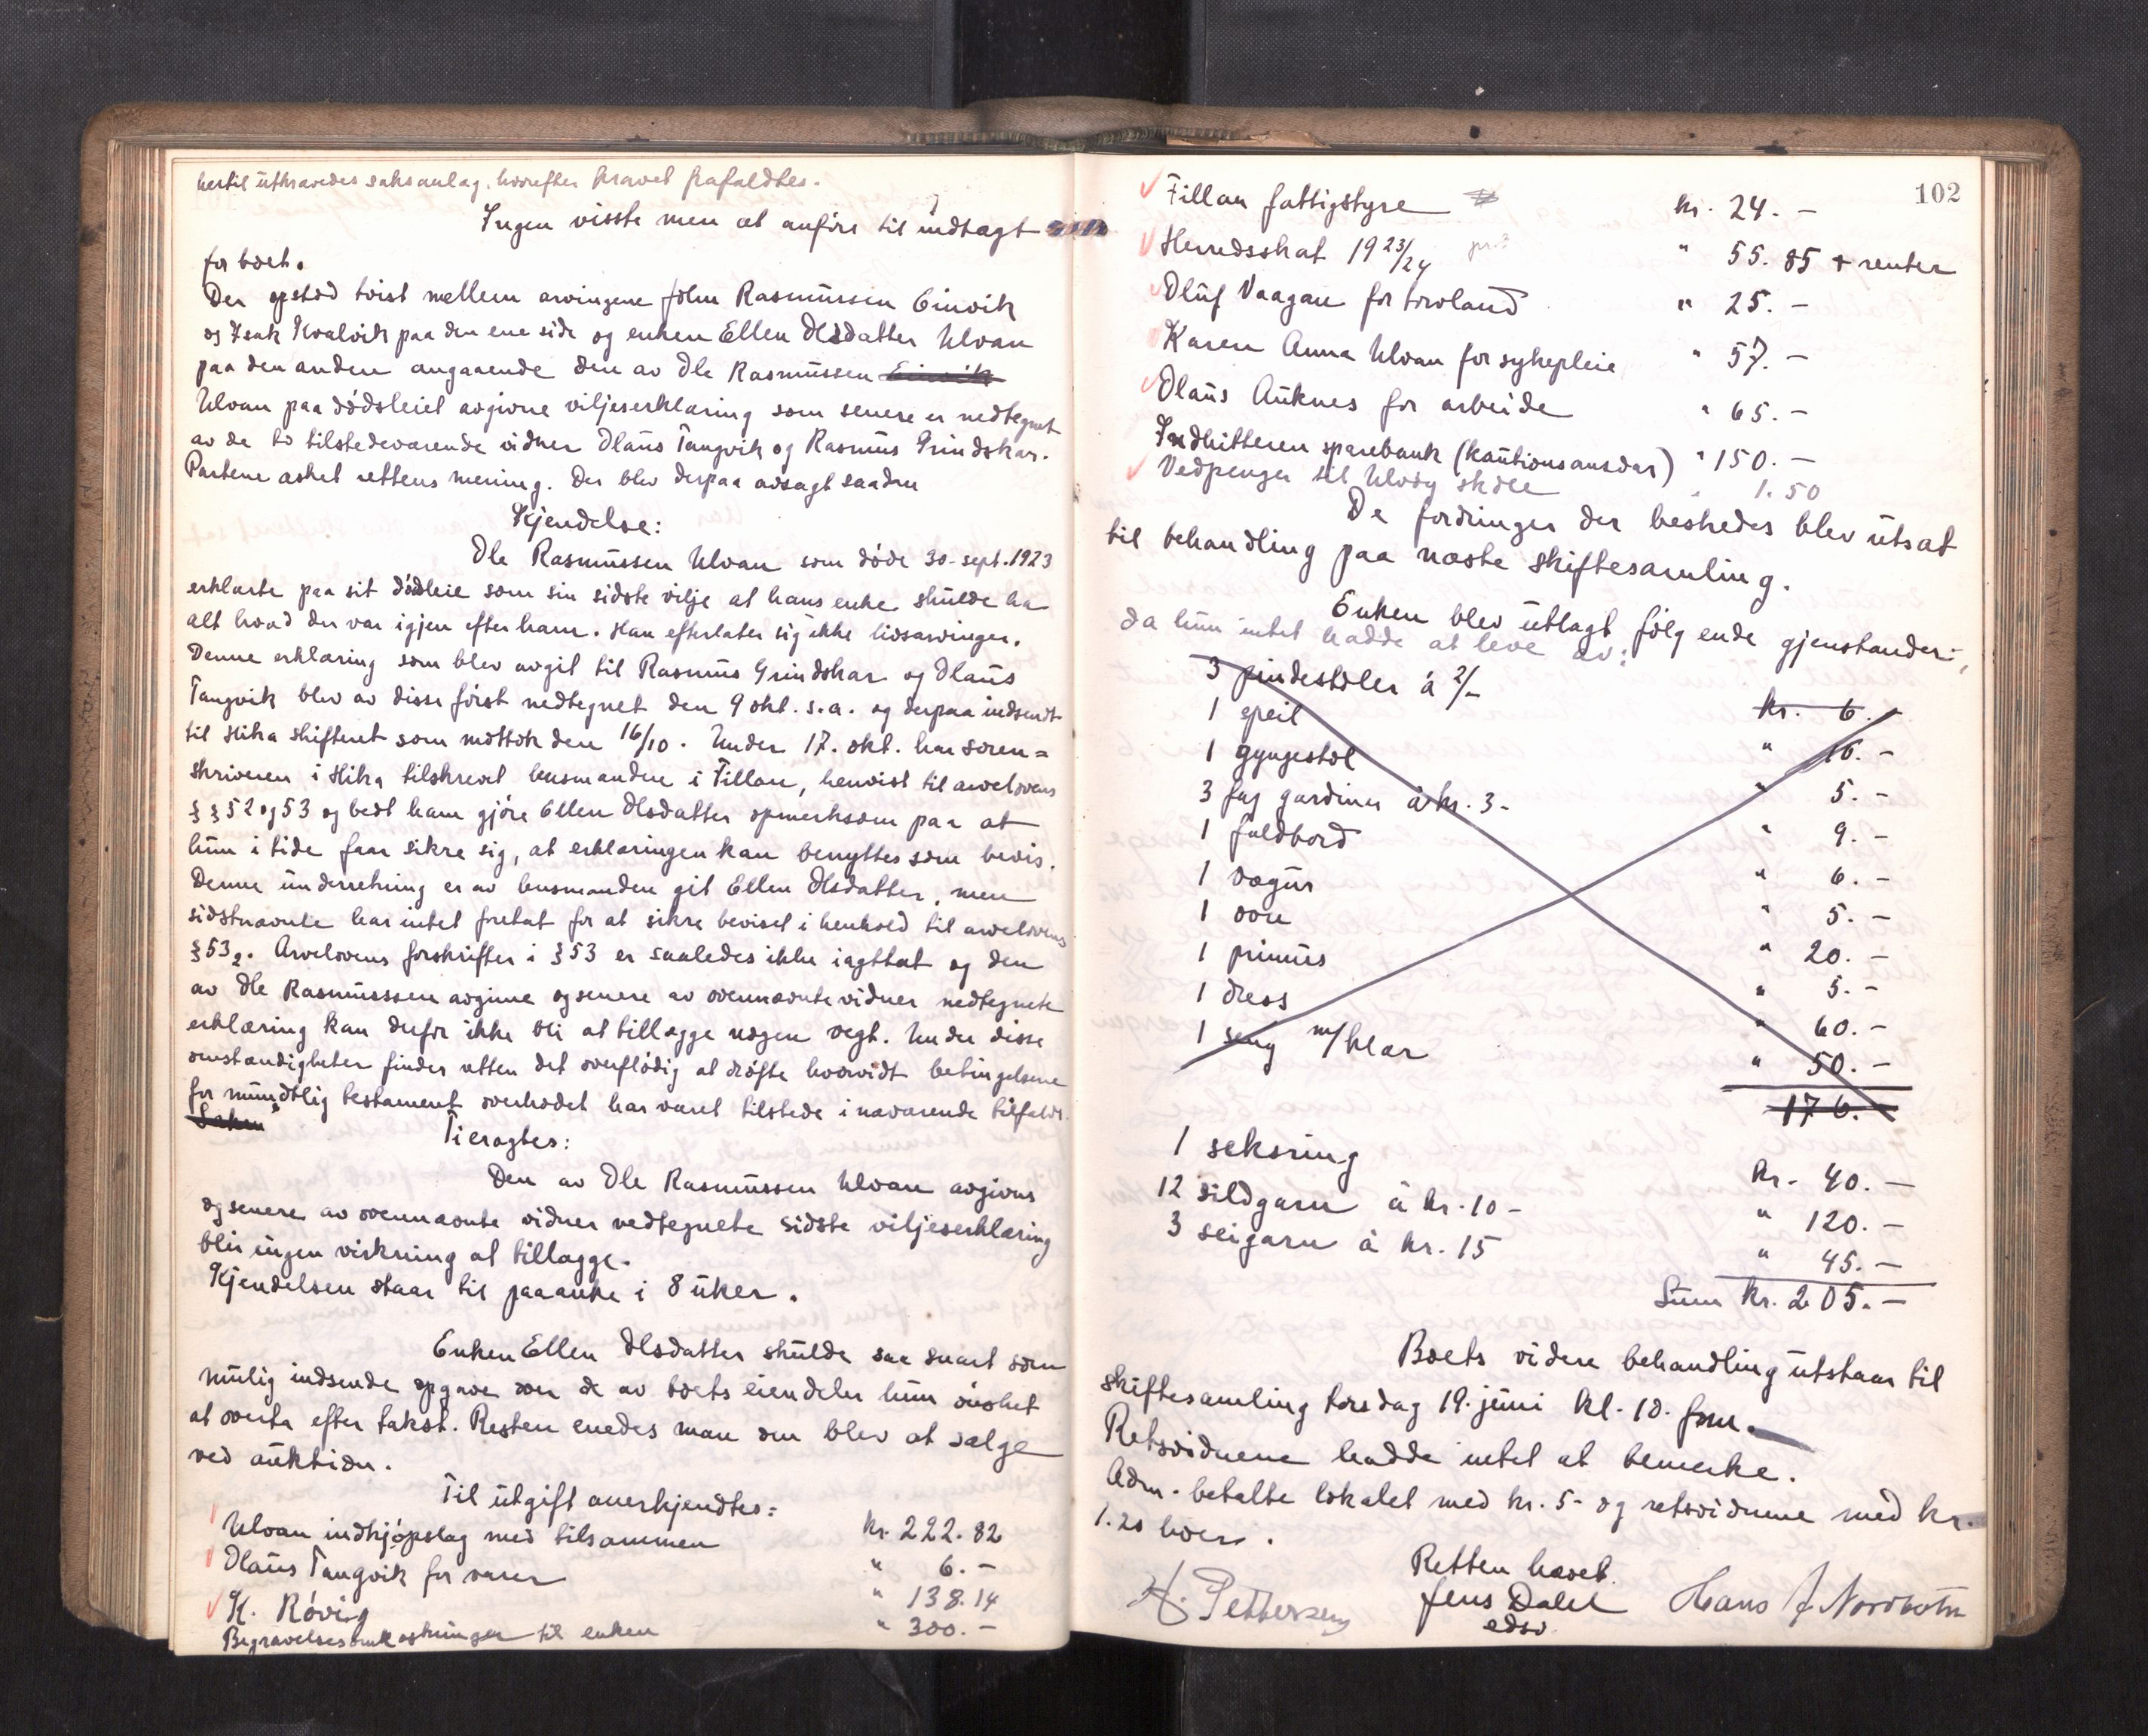 hertil utkrævedes saksanlæg, hvorefter kravet frafaldtes.
Ingen visste men at anføre til indtægt
for boet.
Der opstod tvist mellem arvingene John Rasmussen Einvik
og Isak Kvalvik paa den ene side og enken Ellen Olsdatter Ulvan
paa den anden angaaende den av Ole Rasmussen Einvik
Ulvan paa dødsleiet avgivne viljeserklæring som senere er nedtegnet
av de to tilstedeværende vidner Olaus Tangvik og Rasmus Grindskar.
Partene æsket rettens mening. Der blev derpaa avsagt saadan
Kjendelse:
Ole Rasmussen Ulvan som døde 30. sept. 1923
erklærte paa sit dødsleie som sin sidste vilje at hans enke skulde ha
alt hvad der var igjen efter ham. Han efterlater sig ikke livsarvinger.
Denne erklæring som blev avgit til Rasmus Grindskar og Olaus
Tangvik blev av disse først nedtegnet den 9 okt. s.a. og derpaa indsendt
til Hitra skifteret som mottok den 16/10. Under 17. okt. har soren=
skriveren i Hitra tilskrevet lensmanden i Fillan, henvist til arvelovens
§§ 52 og 53 og bedt ham gjøre Ellen Olsdatter opmerksom paa at
hun i tide faar sikre sig, at erklæringen kan benyttes som bevis.
Denne underretning er av lensmanden git Ellen Olsdatter, men
sidstnævnte har intet foretat for at sikre beviset i henhold til arvelovens
§ 53₂. Arvelovens forskrifter i § 53 er saaledes ikke iagttat og den
av Ole Rasmusssen avgivne og senere av ovennævnte vidner nedtegnete
erklæring kan derfor ikke bli at tillægge nogen vegt. Under disse
omstændigheter finder retten det overflødig at drøfte hvorvidt betingelsene
for mundtlig testament overhodet har været tilstede i nærværende tilfælde.
Saken
Ti eragtes:
Den av Ole Rasmussen Ulvan avgivne
og senere av ovennævnte vidner nedtegnete sidste viljeserklæring
blir ingen virkning at tillægge.
Kjendelsen staar til paaanke i 8 uker.
Enken Ellen Olsdatter skulde saa snart som
mulig indsende opgave over de av boets eiendeler hun ønsket
at overta efter takst. Resten enedes man om blev at sælge
ved auktion.
Til utgift anerkjendtes:
Ulvan indkjøpslag med tilsammen kr. 222.82
Olaus Tangvik for varer " 6.-
K. Røvig " 138.14
Begravelsesomkostninger til enken " 300.-
102
Fillan fattigstyre kr. 24.-
Herredsskat 1923/24 " 55.85 + renter
Oluf Vaagan for torvland " 25.-
Karen Anna Ulvan for sykepleie " 57.-
Olaus Auknes for arbeide " 65.-
Indhitteren sparebank (kautionsansvar) " 150.-
Vedpenger til Ulvøy skole " 1.50
De fordringer der bestredes blev utsat
til behandling paa næste skiftesamling.
Enken blev utlagt følgende gjenstander,
da hun intet hadde at leve av:
3 pindestoler á 2/- kr. 6.-
1 speil " 16.-
1 gyngestol " 5.-
3 fag gardiner á kr. 3- " 9.-
1 foldbord " 6.-
1 vægur " 5.-
1 ovn " 20.-
1 primus " 5.-
1 dress " 60.-
1 seng m/klær " 50.-
176.-
1 seksring kr. 40.-
12 sildgarn á kr. 10- " 120.-
3 seigarn á kr. 15 " 45.-
Sum kr. 205.-
Boets videre behandling utstaar til
skiftesamling torsdag 19. juni kl. 10. fm.
Retsvidnene hadde intet at bemerke.
Adm. betalte lokalet med kr. 5- og retsvidnene med kr.
1.20 hver.
Retten hævet.
H. Pettersen Jens Dalel Hans J Nordbotn
edsv.